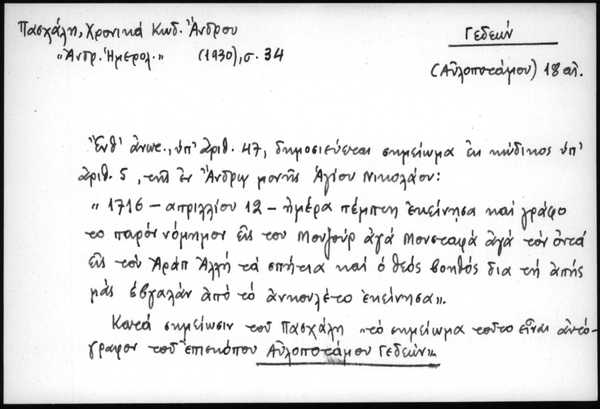 Πασχάλη, Χρονικά Κωδ. Ἄνδρου
"Ἀνδρ. Ἡμερολ." (1930), σ. 34
Γεδεών
(Αὐλοποτάμου) 18 αἰ.
Ἔνθ' ἀνωτ., ὑπ' ἀριθ. 47, δημοσιεύεται σημείωμα ἐκ κώδικος ὑπ'
ἀριθ. 5, τῆς ἐν Ἄνδρῳ μονῆς Ἁγίου Νικολάου:
"1716 - απριλλίου 12 - ἡμέρα πέμπτη ἐκείνησα καί γράφο
το παρόν νόμημον εἰς του Μονζούρ ἀγά Μουσταφά ἀγά τόν ὀντά
εἰς τοῦ Ἀράπ Ἀλλή τά σπήτια καί ὁ θεός βοηθός δια τή ἀπής
μάς ἐβγαλάν ἀπό τό ἀνκουλέτο ἐκείνησα".
Κατά σημείωσιν τοῦ Πασχάλη "τό σημείωμα τοῦτο εἶναι αὐτό-
γραφον τοῦ ἐπισκόπου Αὐλοποτάμου Γεδεών".